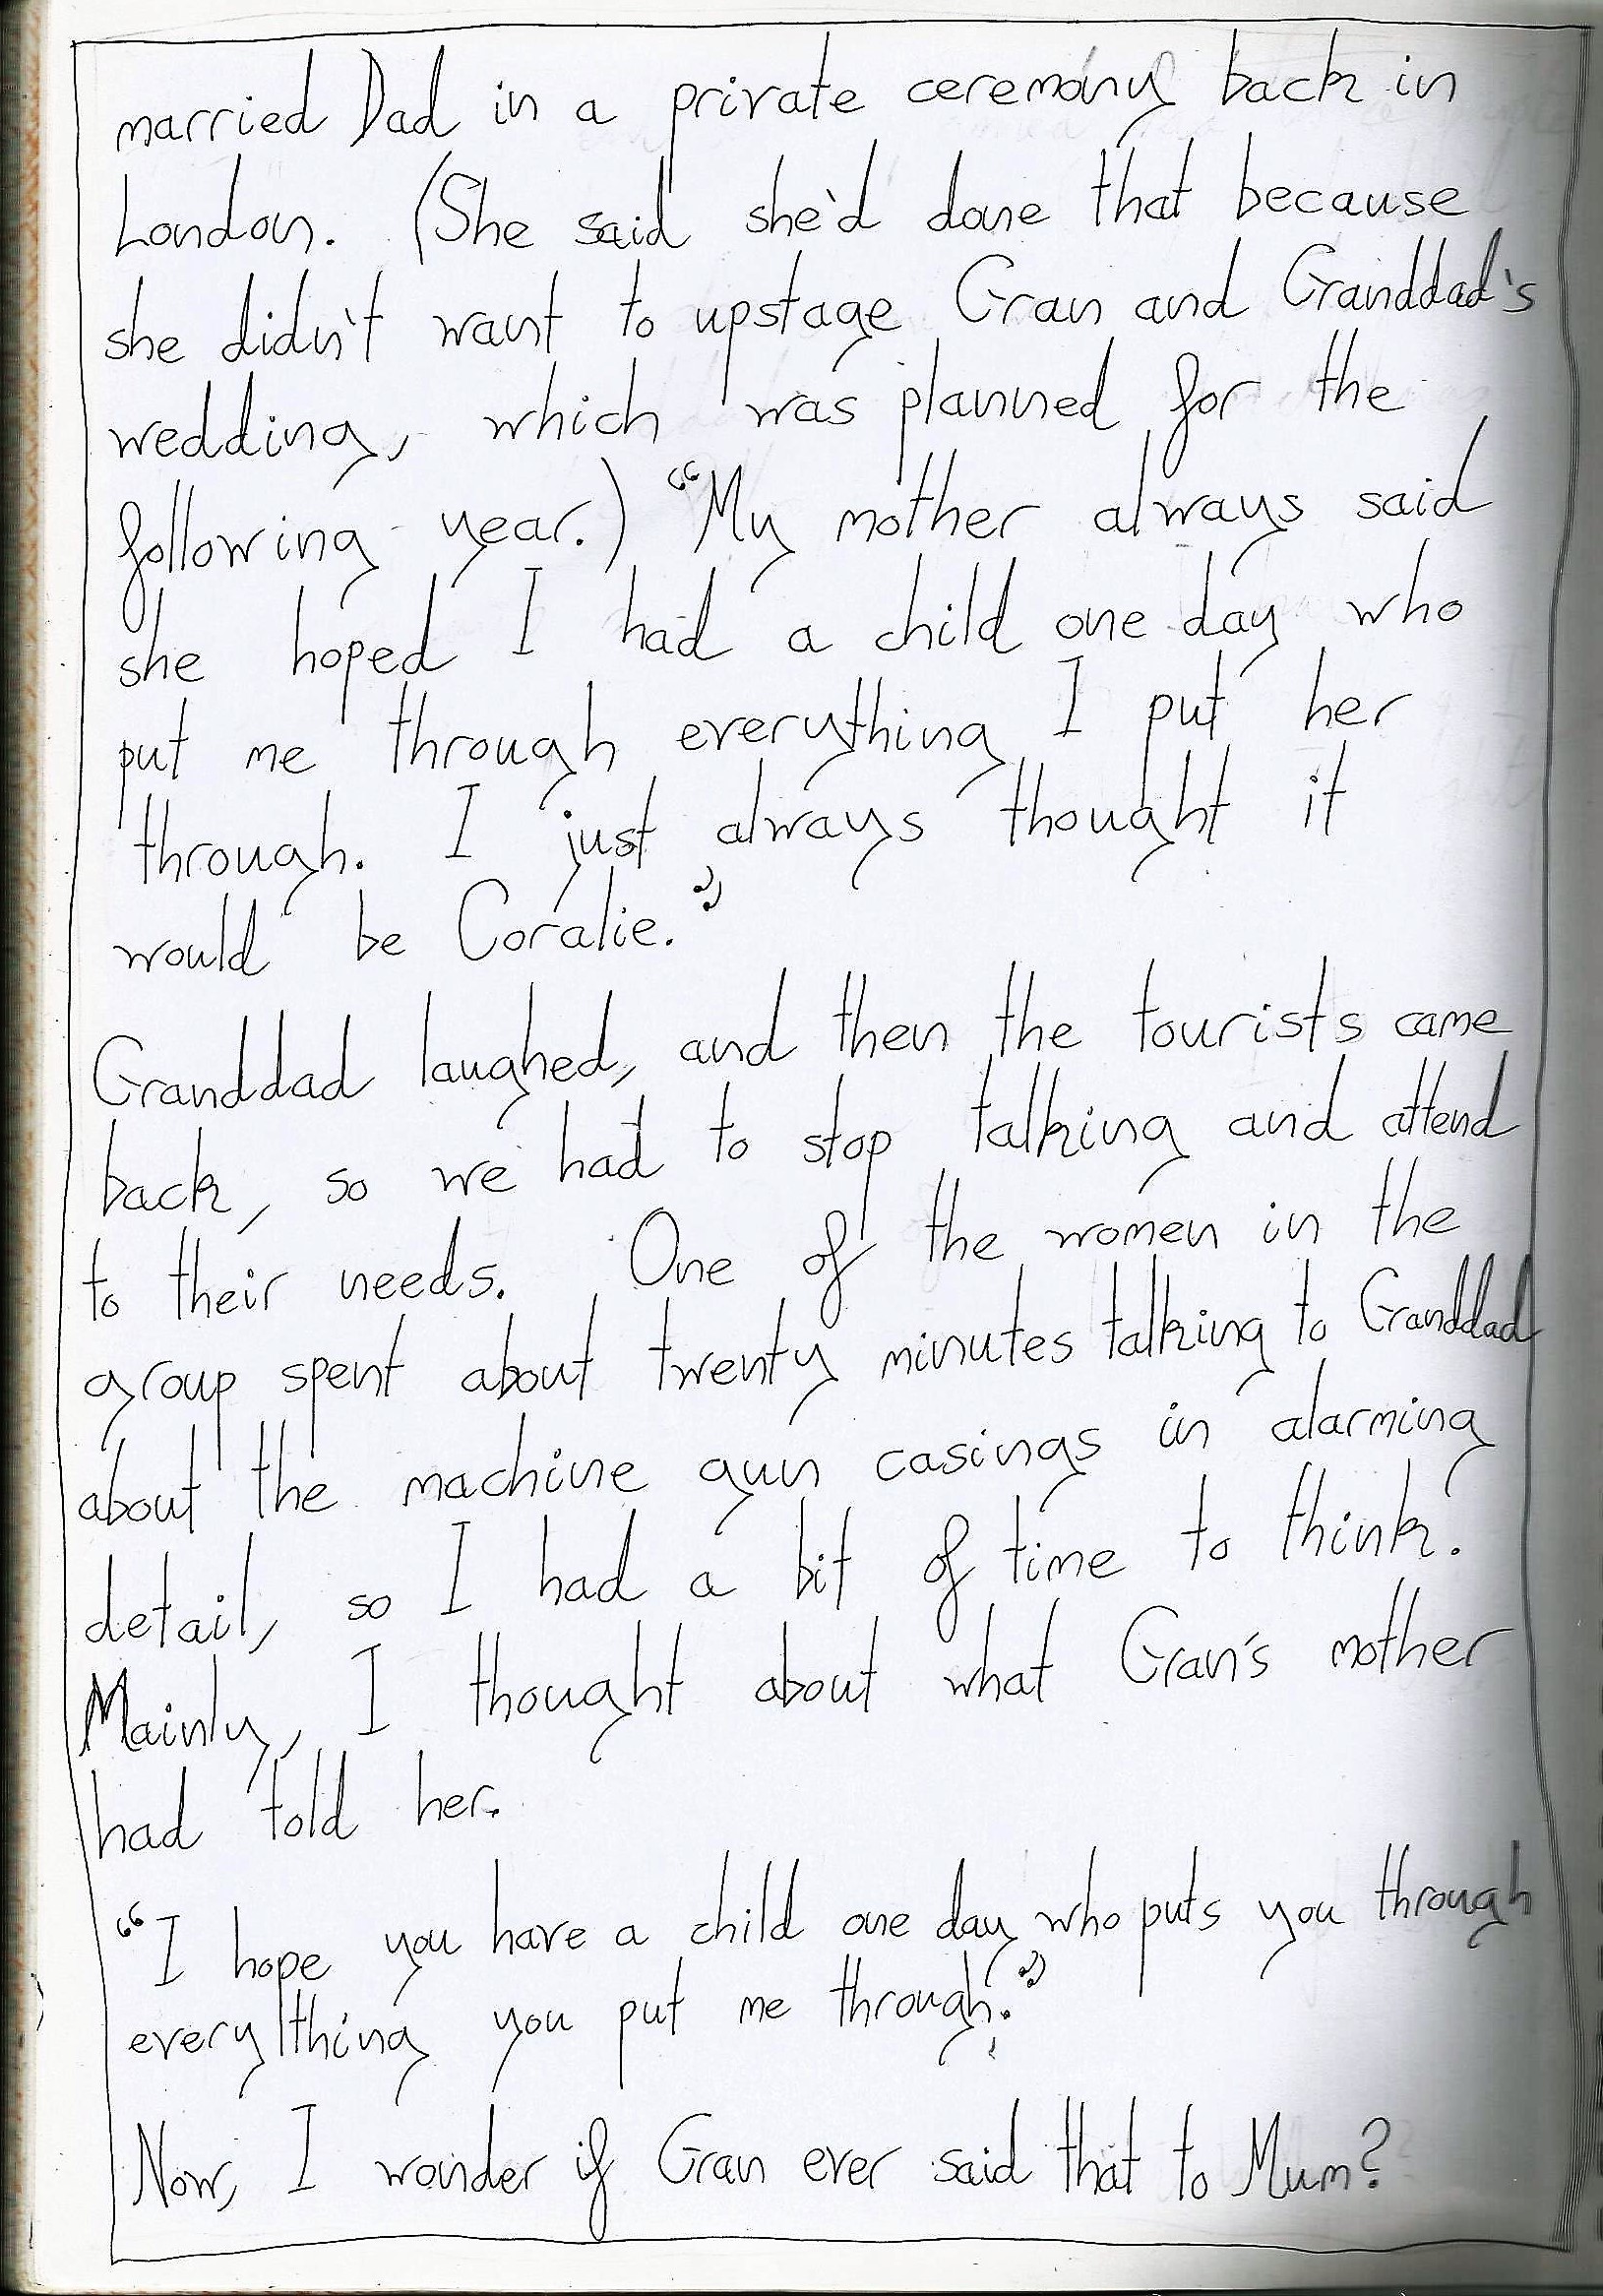 married Dad in a private ceremony back in
London. (She said she'd done that because
she didn't want to upstage Gran and Granddad's
wedding, which was planned for the
following year.) “My mother always said
she hoped I had a child one day who
put me through everything I put her
through. I just always thought it
would be Coralie.”
Granddad laughed, and then the tourists came
back, so we had to stop talking and attend
to their needs. One of the women in the
group spent about twenty minutes talking to Granddad
about the machine gun casings in alarming
detail, so I had a bit of time to think.
Mainly, I thought about what Gran's mother
had told her.
“I hope you have a child one day who puts you through
everything you put me through.”
Now, I wonder if Gran ever said that to Mum?